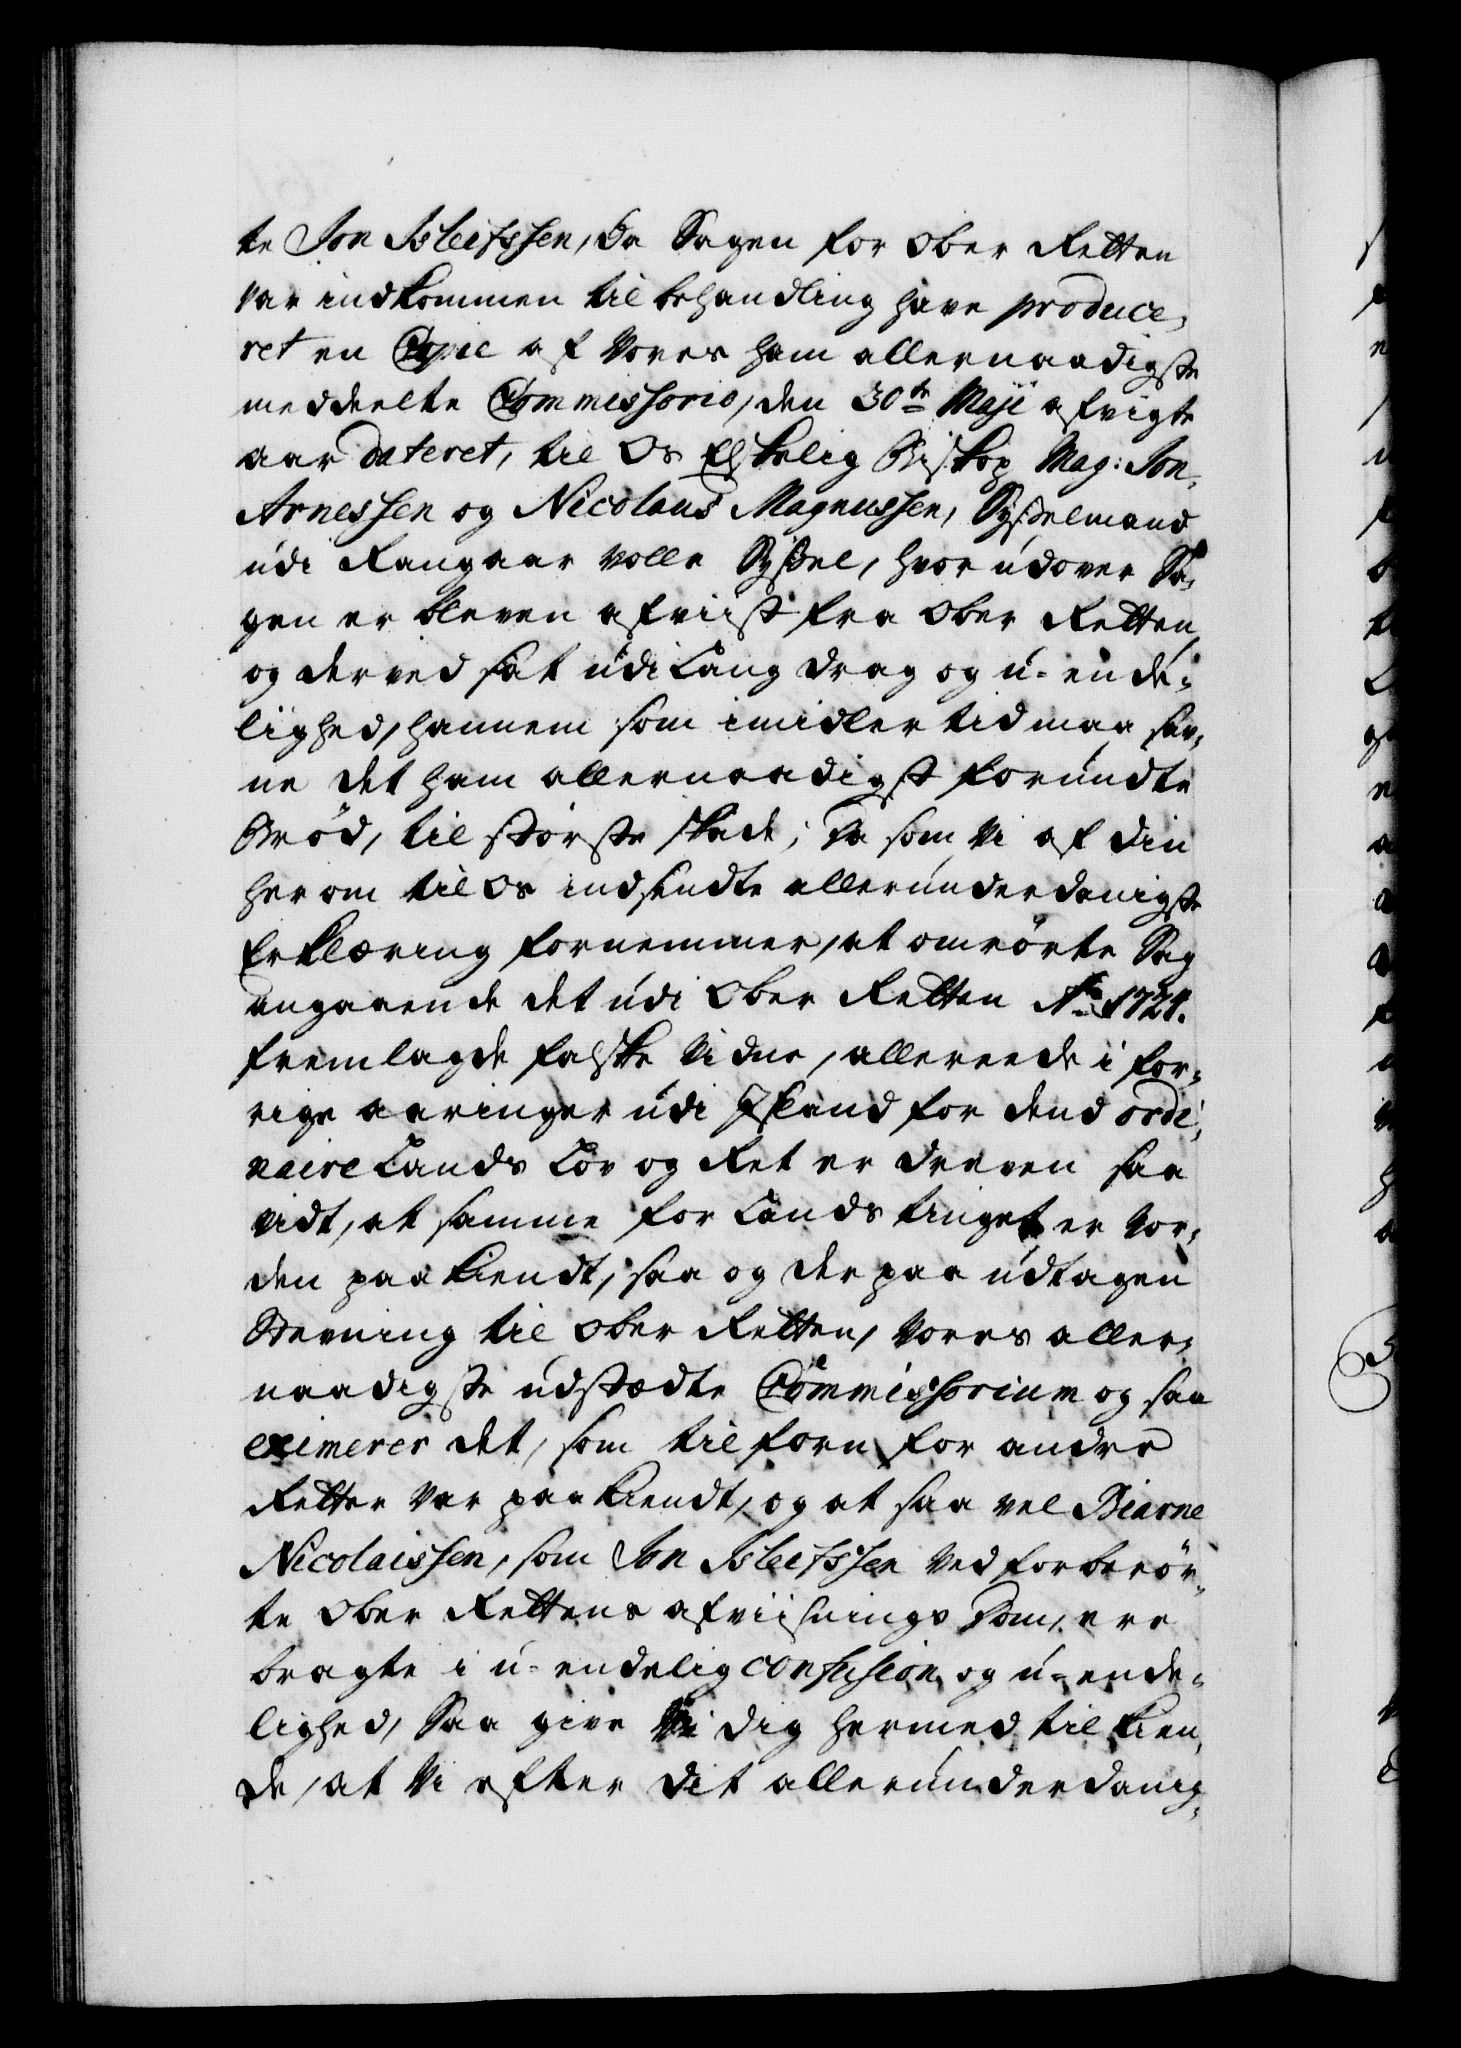 te Jon Isleifssen, da Sagen for Ober Retten
var indkommen til behandling have produce,
ret en Copie af Vores ham allernaadigste
meddeelte Commissorio, den 30te Maji afvigte
aar dateret, til Os Elskelig Biskop Mag: Jon,
Arnessen og Nicolaus Magnussen, Sysselmand
udi Rangaar volle Syssel, hvor udover Sa,
gen er bleven afviist fra Ober Retten,
og derved sat udi Lang drag og u-ende¬
lighed, hannem som imidler tid maa sav,
ne det ham allernaadigst forundte
Brød, til største skade; Da som Vi af din
her om til Os indsendte allerunderdanigste
Erklæring fornemmer, at omrørte Sag
angaaende det udi Ober Retten Ao 1724.
fremlagde falske Vidne, allereede i for¬
rige aaringer udi Island for dend ordi,
naire Lands Lov og Ret er dreven saa
vidt, at samme for Lands tinget er vor,
den paa kiendt, saa og der paa udtagen
Stevning til Ober Retten, Vores aller,
naadigste udstædte Commissorium og saa
eximerer det, som tilforn for andre
Retter var paa kiendt, og at saa vel Biarne
Nicolaissen, som Jon Isleifssen ved forberør,
te Ober Rettens afviisnings Dom, ere
bragte i u-endelig confusion og u-ende¬
lighed, Saa give Vi dig hermed til kien,
de, at Vi efter dit allerunderdanig¬